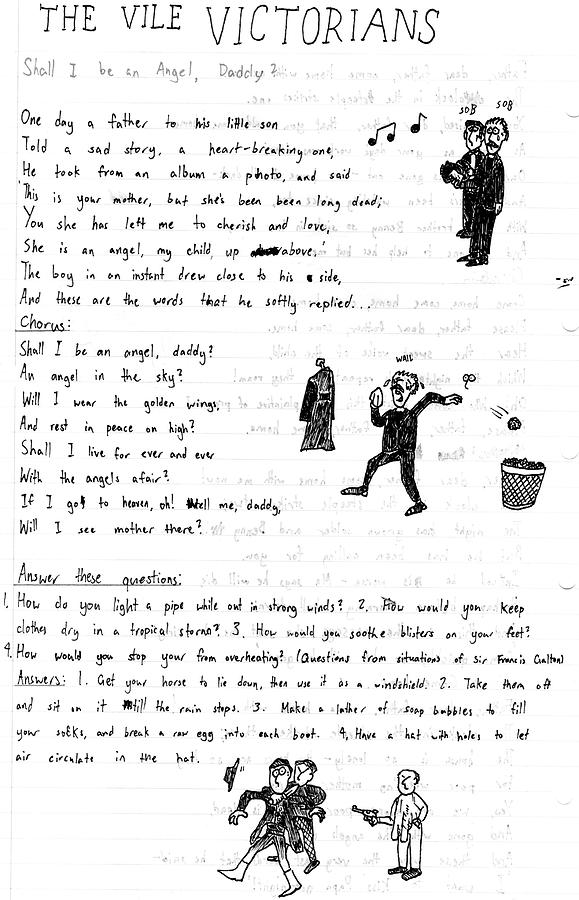 THE VILE VICTORIANS
Shall I be an Angel, Daddy?
SOB SOB
One day a father to his little son
Told a sad story, a heart-breaking one,
He took from an album a photo, and said
'This is your mother, but she's been been long dead;
You she has left me to cherish and love,
She is an angel, my child, up above.'
The boy in an instant drew close to his side,
And these are the words that he softly replied...
Chorus:
Shall I be an angel, daddy?
An angel in the sky?
WAIL
Will I wear the golden wings,
And rest in peace on high?
Shall I live for ever and ever
With the angels afair?
If I got to heaven, oh! tell me, daddy,
Will I see mother there?
Answer these questions:
1. How do you light a pipe while out in strong winds? 2. How would you keep
clothes dry in a tropical storm? 3. How would you soothe blisters on your feet?
4. How would you stop your from overheating? (Questions from situations of Sir Francis Galton)
Answers: 1. Get your horse to lie down, then use it as a windshield. 2. Take them off
and sit on it till the rain stops. 3. Make a lather of soap bubbles to fill
your socks, and break a raw egg into each boot. 4. Have a hat with holes to let
air circulate in the hat.